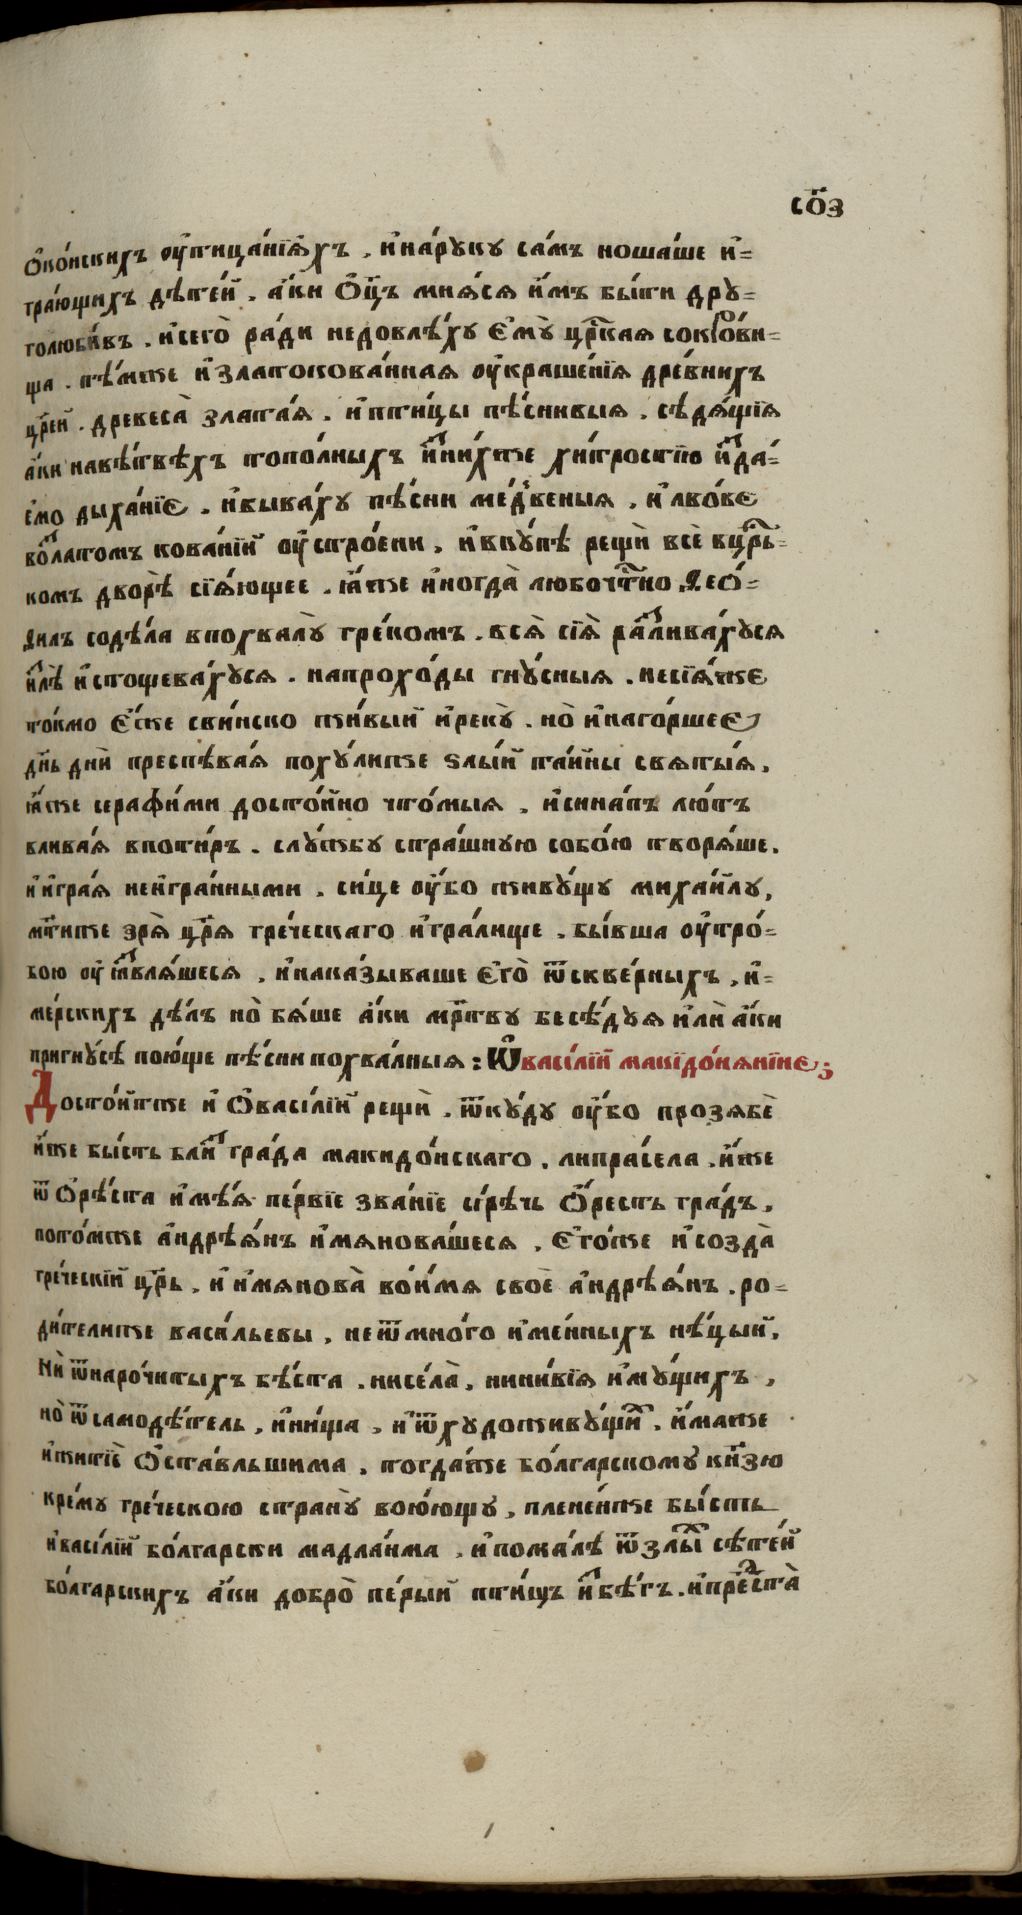 со҃з
ѽко́нскихъ оу҆пицанїѧхъ . и҆на́руку са́мъ ноша́ше и҆=
гра́ющихъ дѣте́й . а҆́ки ѻ҆ц҃ъ мнѧ́сѧ и҆́мъ бы́ти дру=
голюби́въ . и҆сего̀ ра́ди недовлѣ́ху є҆му̀ цр҃скаѧ сокро́ви=
ща . тѣ́мже и҆златокова́ннаѧ оу҆краше́нїѧ дре́внихъ
цр҃ей . древеса̀ злата́ѧ . и҆пти́цы пѣ́снивыѧ . сѣдѧ́щїѧ
а҆́ки навѣ́твѣхъ тополныхъ и҆зни́хже хи́тростїю и҆зда=
є҆мо дыха́нїе . и҆быва́ху пѣ́сни ме́двеныѧ . и҆ лво́ве
во́златомъ кова́нїи оу҆стро́ени . и҆вку́пѣ рещѝ всѐ вцр҃ь=
комъ дворѣ̀ сїѧ́ющее . ꙗ҆́же и҆ногда̀ любочт҃но Ѳео́=
ѳилъ содѣ́ла впохвалу̀ гре́комъ . всѧ̀ сїѧ̀ разлива́хусѧ
и҆злѣ̀ и҆стощева́хусѧ . напрохо́ды гну́сныѧ . несїѧ́же
то́кмо є҆́же сви́нско жи́вый и҆рекꙋ̀ . но̀ и҆наго́ршее
дн҃ь днѝ преспѣва́ѧ поху́лиже ѕлы́й та́йны свѧты́ѧ .
ꙗ҆́же серафи́ми досто́йно что́мыѧ . и҆сина́пъ лю́тъ
влива́ѧ впоти́ръ . слу́жбу стра́шную собо́ю творѧ́ше .
и҆игра́ѧ неигра́нными . си́це оу҆́бо живу́щу михаи́лу .
мт҃иже зрѧ̀ цр҃ѧ гре́ческаго и҆гра́лище . бы́вша оу҆тро́=
бою оу҆ѧзвлѧ́шесѧ . и҆наказываше є҆го̀ ѿскве́рныхъ . и҆=
ме́рскихъ дѣ́лъ но̀ бѧ́ше а҆́ки мр҃тву бесѣ́дуѧ и҆лѝ а҆́ки
пригну́сѣ пою́ще пѣ́сни похва́лныѧ : Ѽ васи́лїи макїдо́нѧнїне ;
Досто́йже и҆ ѽвасі́лїи рещѝ . ѿку́ду оу҆́бо прозѧбѐ
и҆́же бы́сть бли́з гра́да макидо́нскаго . липра́села . и҆́же
ѿ Ѻрѣ́ста и҆мѣ́ѧ пе́рвїе зва́нїе си́рѣчь Ѻ҆́ресть гра́дъ .
пото́мже а҆ндрѣѧ́нъ и҆мѧнова́шесѧ . є҆го́же и҆ созда̀
гре́ческїй цр҃ь . и҆ и҆мѧнова̀ во́имѧ своѐ а҆ндрѣѧ́нъ . ро=
ди́телиже васи́льевы . неѿмно́го и҆ме́нныхъ нѣ́цыи .
нѝ ѿнаро́читыхъ бѣ́ста . нисела̀ . нини́вїѧ и҆му́щихъ .
но̀ ѿсамодѣ́тель . и҆ни́ща . и҆ ѿхудоживу́щих . и҆́маже
и҆житїѐ ѻ҆ста́вльшима . тогда́же бо́лгарскому кн҃зю
крему гре́ческою страну̀ вою́ющꙋ . плене́нже бы́сть
и҆васи́лїй бо́лгарски мадла́нма . и҆пома́лѣ ѿзлы́х сѣте́й
бо́лгарскихъ а҆́ки добро̀ пе́рый пти́цъ и҆збѣ́гъ . и҆преста̀